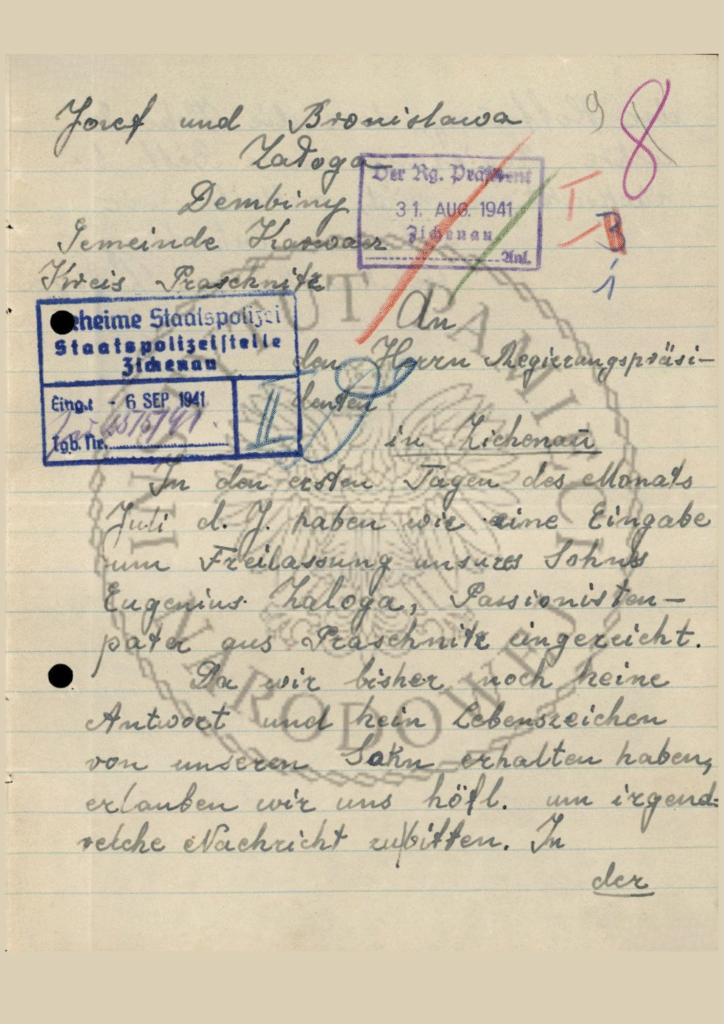 Josef und Bronislawa
Załoga
Dembiny
Gemeinde Karwacz
Kreis Praschnitz
9
8
Der Rg. Präsident
31. AUG. 1941
Zichenau
Anl.
I
B
1
Geheime Staatspolizei
Staatspolizeistelle
Zichenau
Eing.: - 6 SEP. 1941
Tgb. Nr.
II
An
den Herrn Regierungspräsi-
denten
in Zichenau
In den ersten Tagen des Monats
Juli d. J. haben wir eine Eingabe
um Freilassung unseres Sohns
Eugenius Zaloga, Passionisten-
pater aus Praschnitz eingereicht.
Da wir bisher noch keine
Antwort und kein Lebenszeichen
von unseren Sohn erhalten haben,
erlauben wir uns höfl. um irgend-
welche Nachricht zu bitten. In
der
INSTYTUT PAMIĘCI
NARODOWEJ